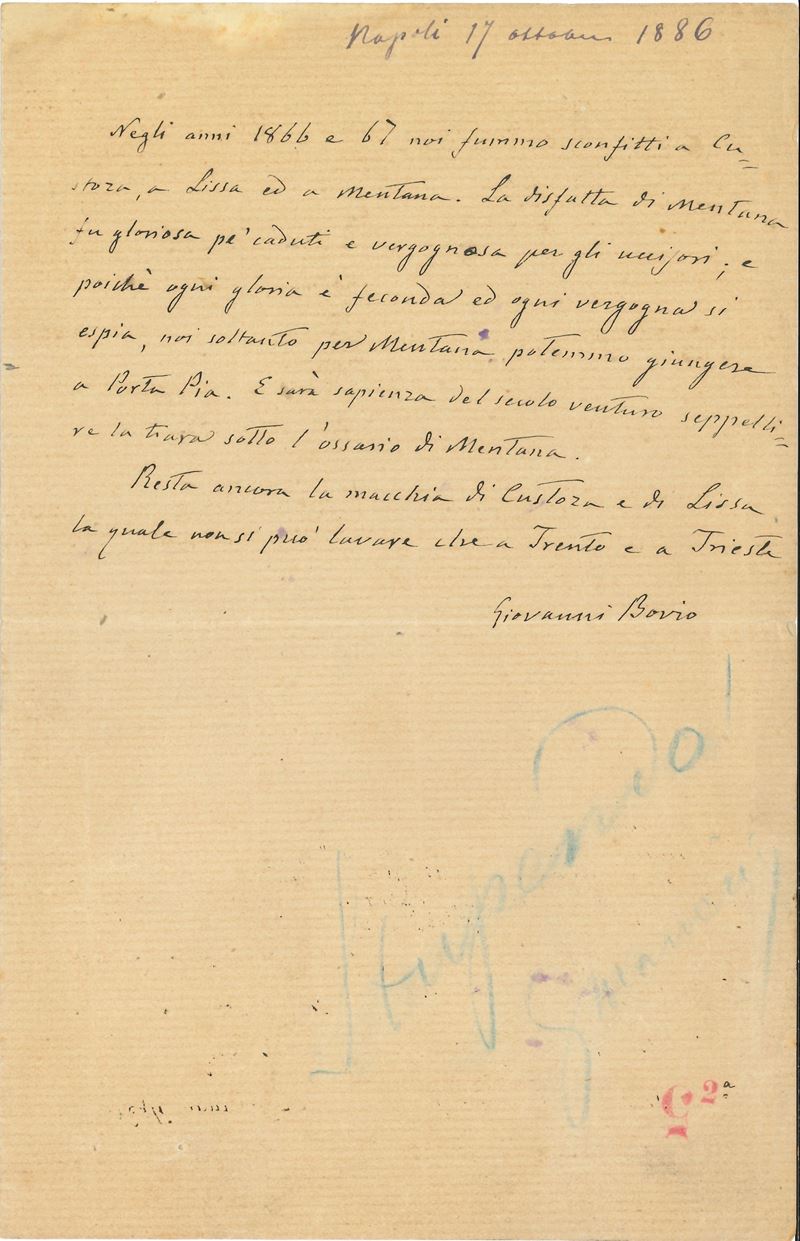 Napoli 17 ottobre 1886
Negli anni 1866 e 67 noi fummo sconfitti a Cu=
stoza, a Lissa ed a Mentana. La disfatta di Mentana
fu gloriosa pe' caduti e vergognosa per gli uccisori; e
poichè ogni gloria è feconda ed ogni vergogna si
espia, noi soltanto per Mentana potemmo giungere
a Porta Pia. E sarà sapienza del secolo venturo seppelli=
re la tiara sotto l'ossario di Mentana.
Resta ancora la macchia di Custoza e di Lissa
la quale non si può lavare che a Trento e a Trieste
Giovanni Bovio
Stupendo!
2a